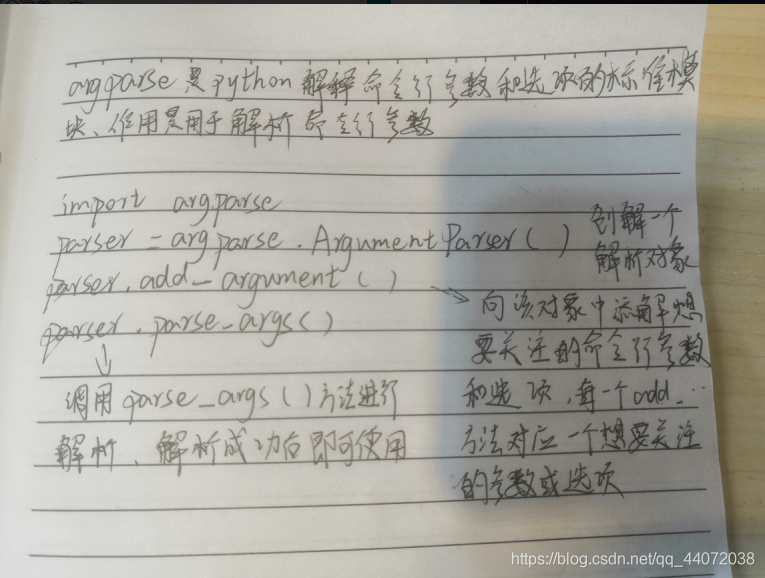 argparse 是 python 解释命令行参数和选项的标准模
块、作用是用于解析命令行参数
import argparse
parser = argparse.ArgumentParser( ) 创解一个
解析对象
parser.add_argument ( )
向该对象中添解想
要关注的命令行参数
和选项,每一个add_…
方法对应一个想要关注
的参数或选项
parser.parse_args()
调用 parse_args ( ) 方法进行
解析、解析成功后即可使用
https://blog.csdn.net/qq_44072038